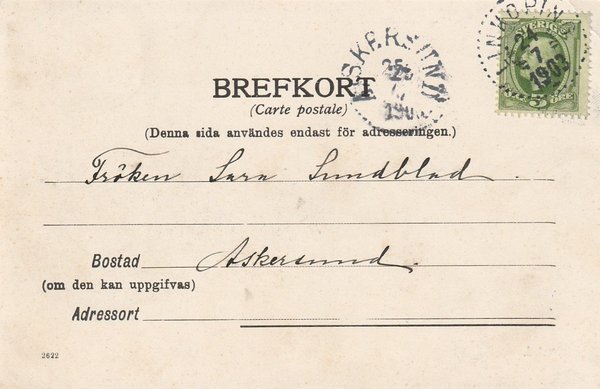 SVERIGE
24
7
1903
5 ÖRE
ASKERSUND
25
7
BREFKORT
(Carte postale)
(Denna sida användes endast för adresseringen.)
Fröken Sara Sundblad.
Bostad Askersund.
(om den kan uppgifvas)
Adressort
2622